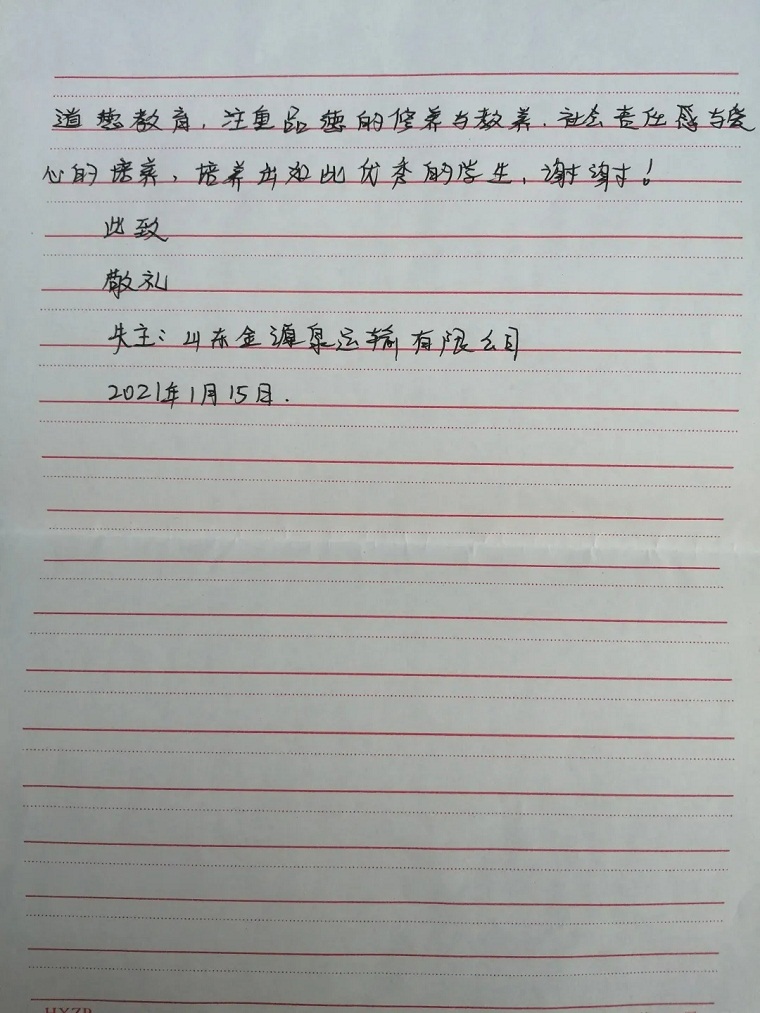 道德教育，注重品德的修养与教养，社会责任感与爱
心的培养，培养出如此优秀的学生，谢谢！
此致
敬礼
失主：山东金源泉运输有限公司
2021年1月15日.